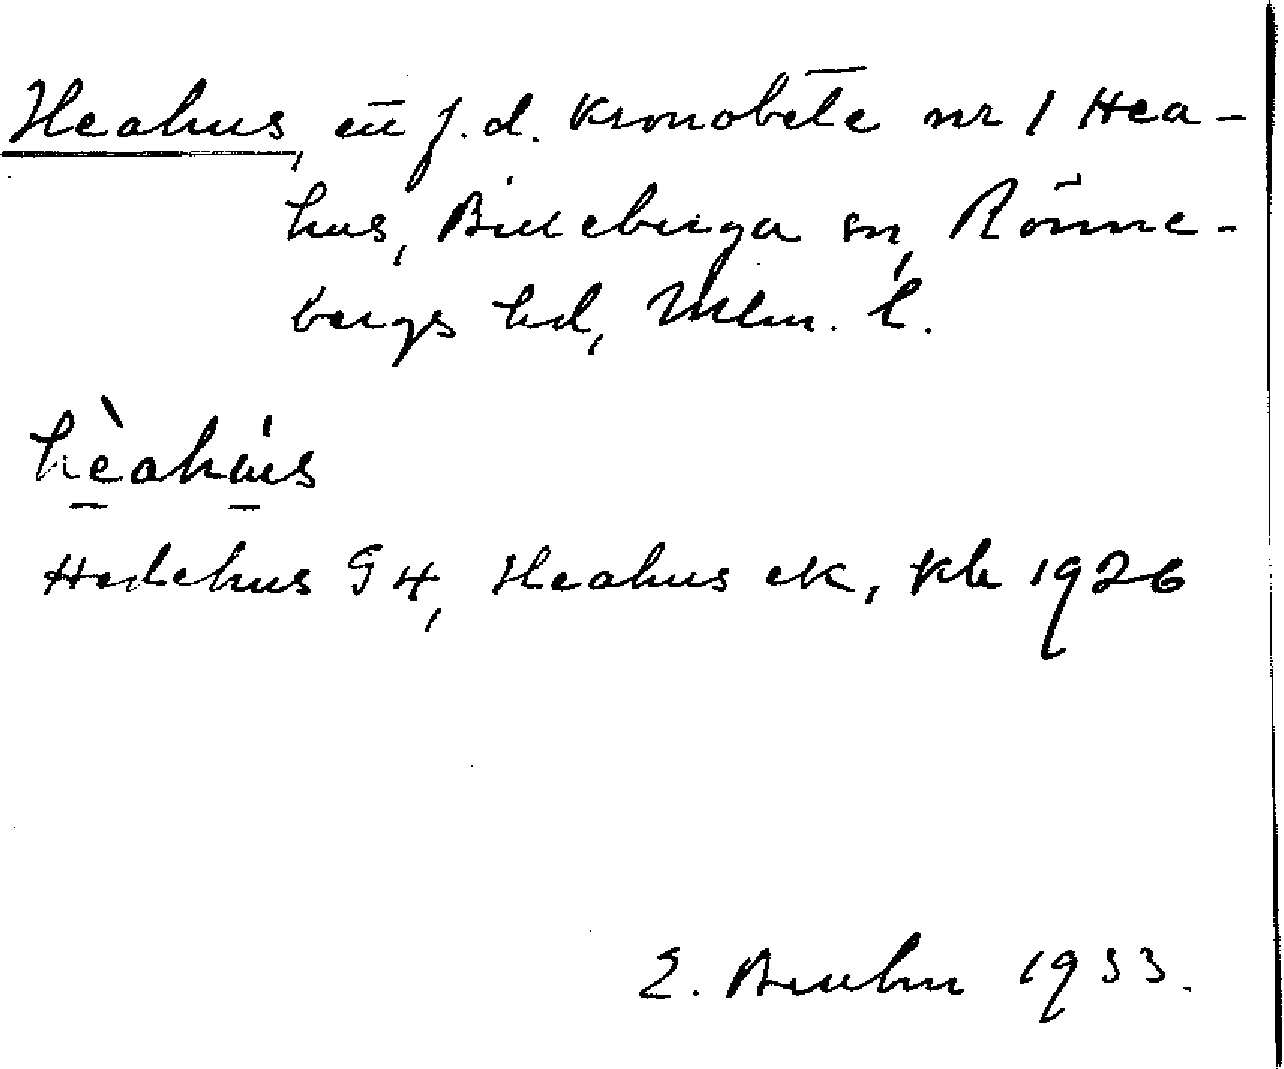 Heahus, en f.d. Kronobete nr 1 Hea-
hus, Billeberga sn, Rönne-
bergs hd, Mlm. l.
hèahús
Hedehus G 4, Heahus ek, kb 1926
1933.